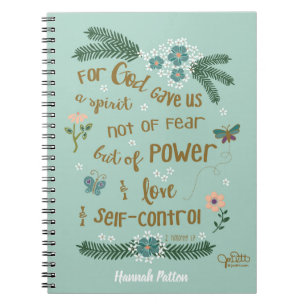 For God gave us
a spirit
not of fear
but of Power
& love
& self-control
Hannah Patton